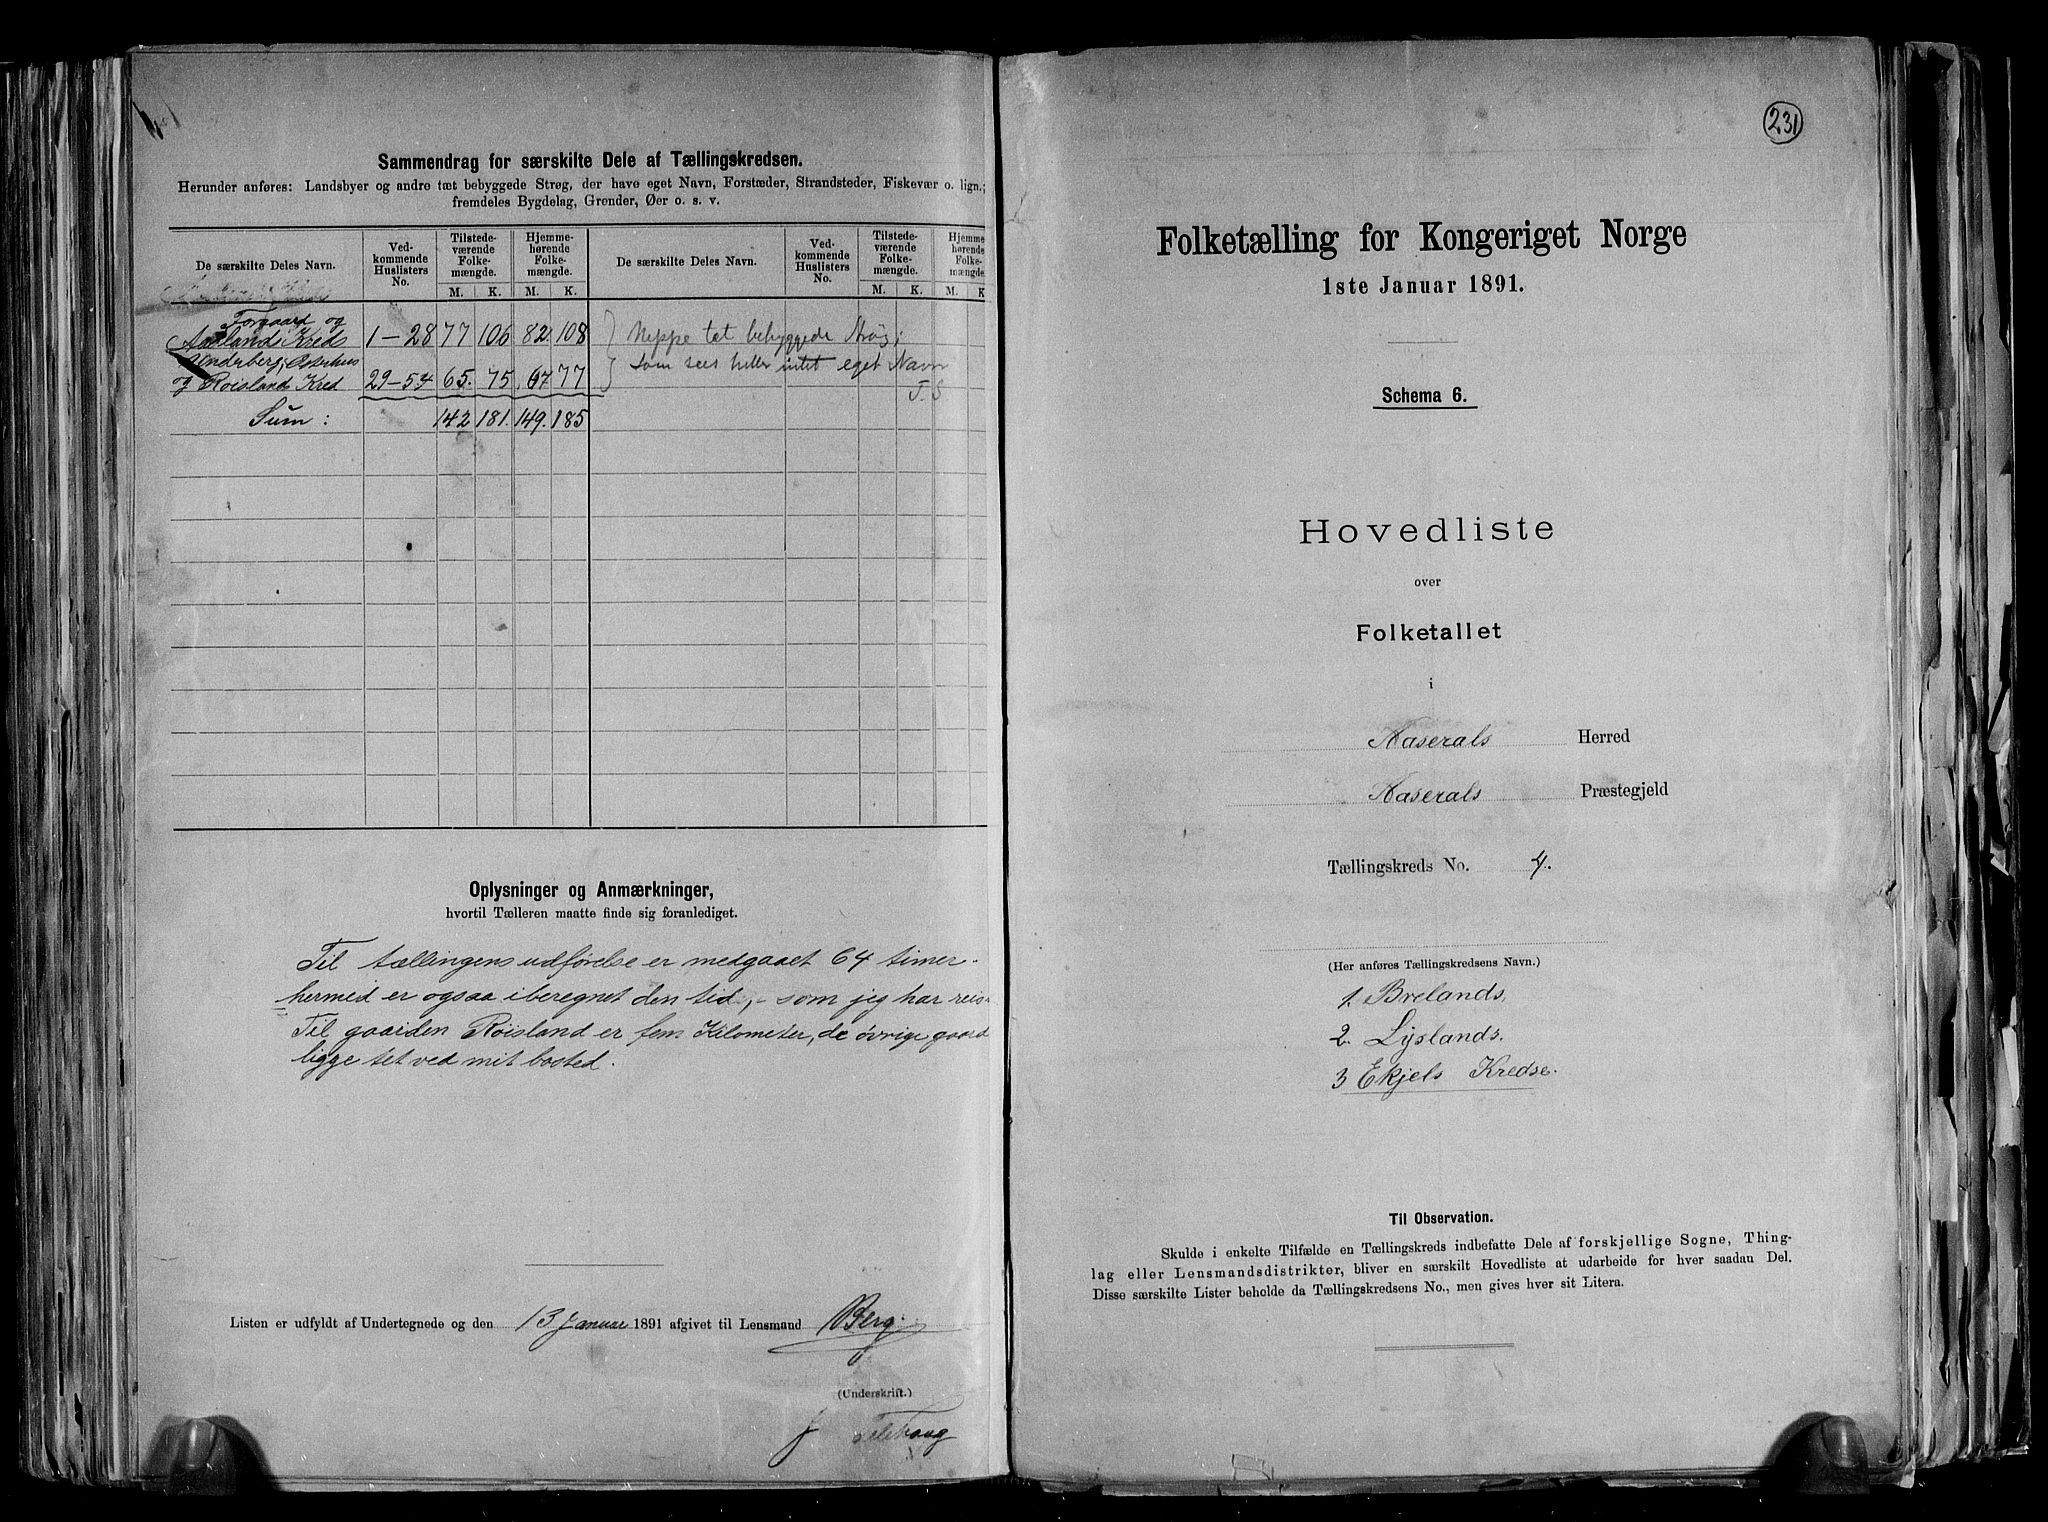 Sammendrag for særskilte Dele af Tællingskredsen.
Herunder anføres: Landsbyer og andre tæt bebyggede Strøg, der have eget Navn, Forstæder, Strandsteder, Fiskevær o. lign.;
fremdeles Bygdelag, Grender, Øer o. s. v.
De særskilte Deles Navn. Ved-kommende Huslisters No. Tilstede-værende Folke-mængde. Hjemme-hørende Folke-mængde. De særskilte Deles Navn. Ved-kommende Huslisters No. Tilstede-værende Folke-mængde. Hjemme-hørende Folke-mængde.
M. K. M. K. M. K. M. K
Forgaard og
Aaslands Kreds 1-28 77 106 82 108 Neppe tet bebyggede Strøg;
Underberg, Østerhus som sees heller intet eget Navn
og Røisland Kred 29-54 65. 75 67 77 T. S
Sum: 142 181. 149. 185
Oplysninger og Anmærkninger,
hvortil Tælleren maatte finde sig foranlediget.
Til tællingens udførelse er medgaaet 64 timer.
hermed er ogsaa iberegnet den tid, som jeg har reis
Til gaarden Røisland er fem Kilometer, de øvrige gaard
ligge tet ved mit bosted.
Listen er udfyldt af Undertegnede og den 13 Januar 1891 afgivet til Lensmand Berg.
(Underskrift.)
231
Folketælling for Kongeriget Norge
1ste Januar 1891.
Schema 6.
Hovedliste
over
Folketallet
i
Aaserals Herred
Aaserals Præstegjeld
Tællingskreds No. 4.
(Her anføres Tællingskredsens Navn.)
1. Brelands,
2. Lyslands.
3 Ekjels Kredse.
Til Observation.
Skulde i enkelte Tilfælde en Tællingskreds indbefatte Dele af forskjellige Sogne, Thing-
lag eller Lensmandsdistrikter, bliver en særskilt Hovedliste at udarbeide for hver saadan Del.
Disse særskilte Lister beholde da Tællingskredsens No., men gives hver sit Litera.